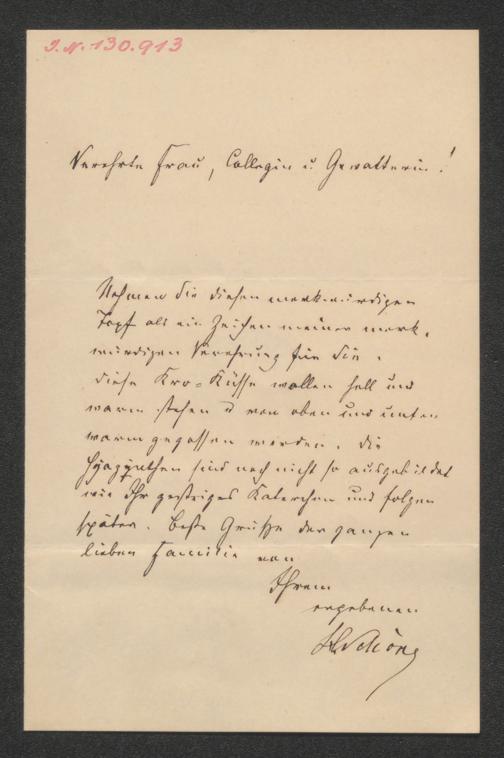 J.N. 130.913
Verehrte Frau, Collegin u Gevatterin!
Nehmen Sie diesen merkwürdigen
Topf als ein Zeichen meiner merk-
würdigen Verehrung für Sie.
Diese Kro-Küsse wollen hell und
warm stehen u von oben und unten
warm gegossen werden. Die
Hyazynthen sind noch nicht so ausgebildet
wie Ihr gestriges Katerchen und folgen
später. Beste Grüße der ganzen
lieben Familie von
Ihrem
ergebenen